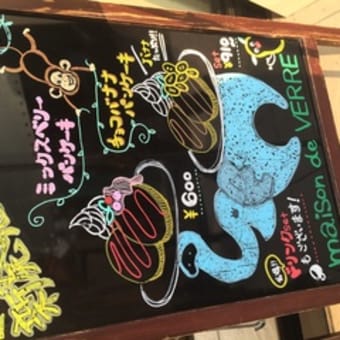 maison de VERRE
ドリンクset
もございます!
Set
910
¥600
チョコバナナ
パンケーキ
ミックスベリー
パンケーキ